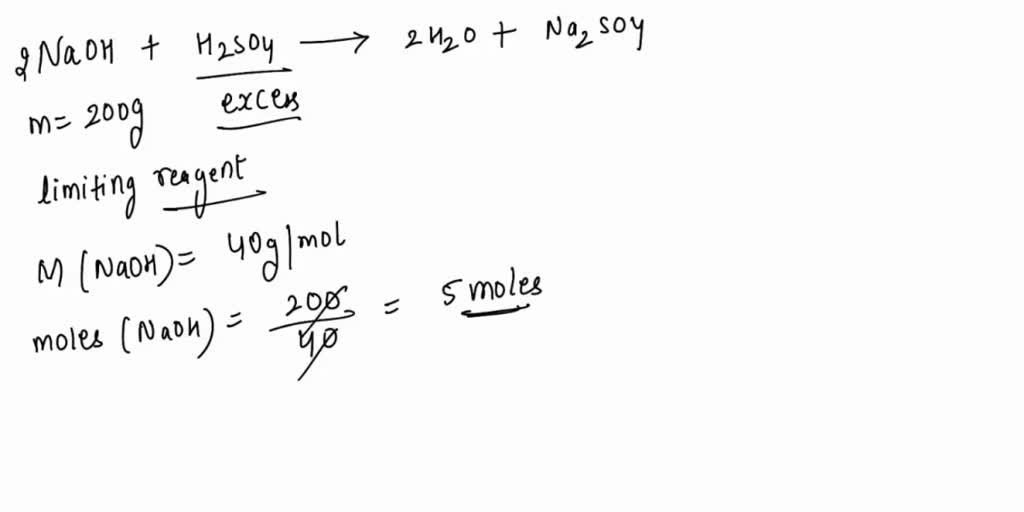 2NaOH + H2SO4 → 2H2O + Na2SO4
m= 200g excess
limiting reagent
M (NaOH)= 40g/mol
moles (NaOH) = 200/40 = 5 moles